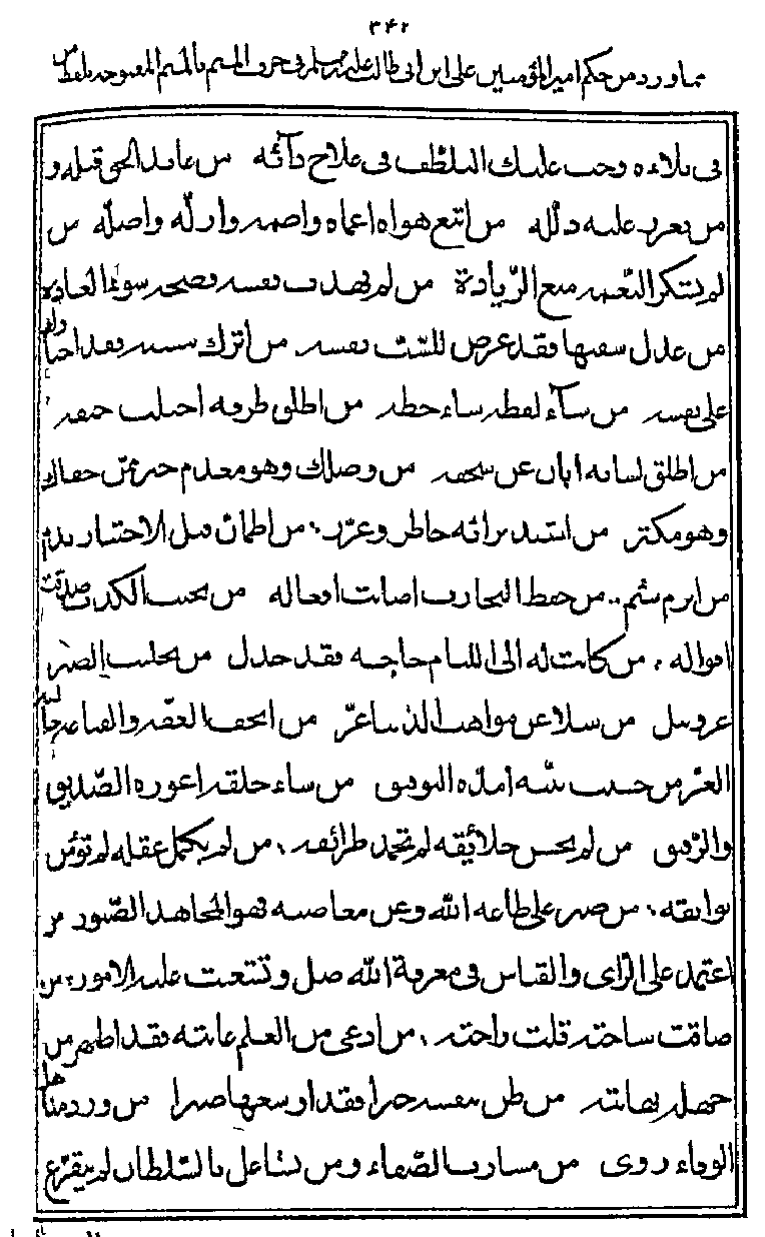 ۳۴۲
مما ورد من حكم امير المؤمنين على ابن ابى طالب عليه فى حرف الميم بالميم المفتوحة بلفظ من
فى بلاءه وجب عليك التلطف فى علاج دآئه من عاند الحق قتله و
من تعزز عليه ذلله من اتبع هواه اعماه واصمه وازلّه واضلّه من
لم يشكر النّعمه منع الزّيادة من لم يهذب نفسه فضحه سوء العاده
من عذل سفيها فقد عرض للسّب نفسه من
على نفسه من سآء لفظه ساء حظه من اطلق طرفه اجتلب حتفه
من اطلق لسانه ابان عن سخفه من وصلك وهو معدم خير ممّن جفاك
وهو مكثر من استبد برائه خاطر وغرّر من اطمان قبل الاختبار ندم
من ابرم سئم من حفظ التجارب اصابت افعاله من تجنب الكذب صدقت
اقواله من كانت له الى اللئام حاجه فقد خذل من تجلبب الصبر
عز ونبل من سلا عن مواهب الدنيا عزّ من اتحف العفّه والقناعه
العز من حسنت نيته امدّه التوفيق من ساء خلقه اعوزه الصّديق
والرّفيق من لم يحسن خلائقه لم تحمد طرائقه من لم يكمل عقله لم تؤمن
بوائقه من صبر على طاعه الله وعن معاصيه فهو المجاهد الصّبور من
اعتمد على الرّاى والقياس فى معرفة الله ضل وتشعبت عليه الامور من
ضاقت ساحته قلت راحته من ادعى من العلم غايته فقد اظهر من
جهله نهايته من ظن بنفسه خيرا فقد اوسعها ضيرا من ورد مناهل
الوفاء روى من مشارب الصّفاء ومن تشاغل بالسّلطان لم يتفرّغ